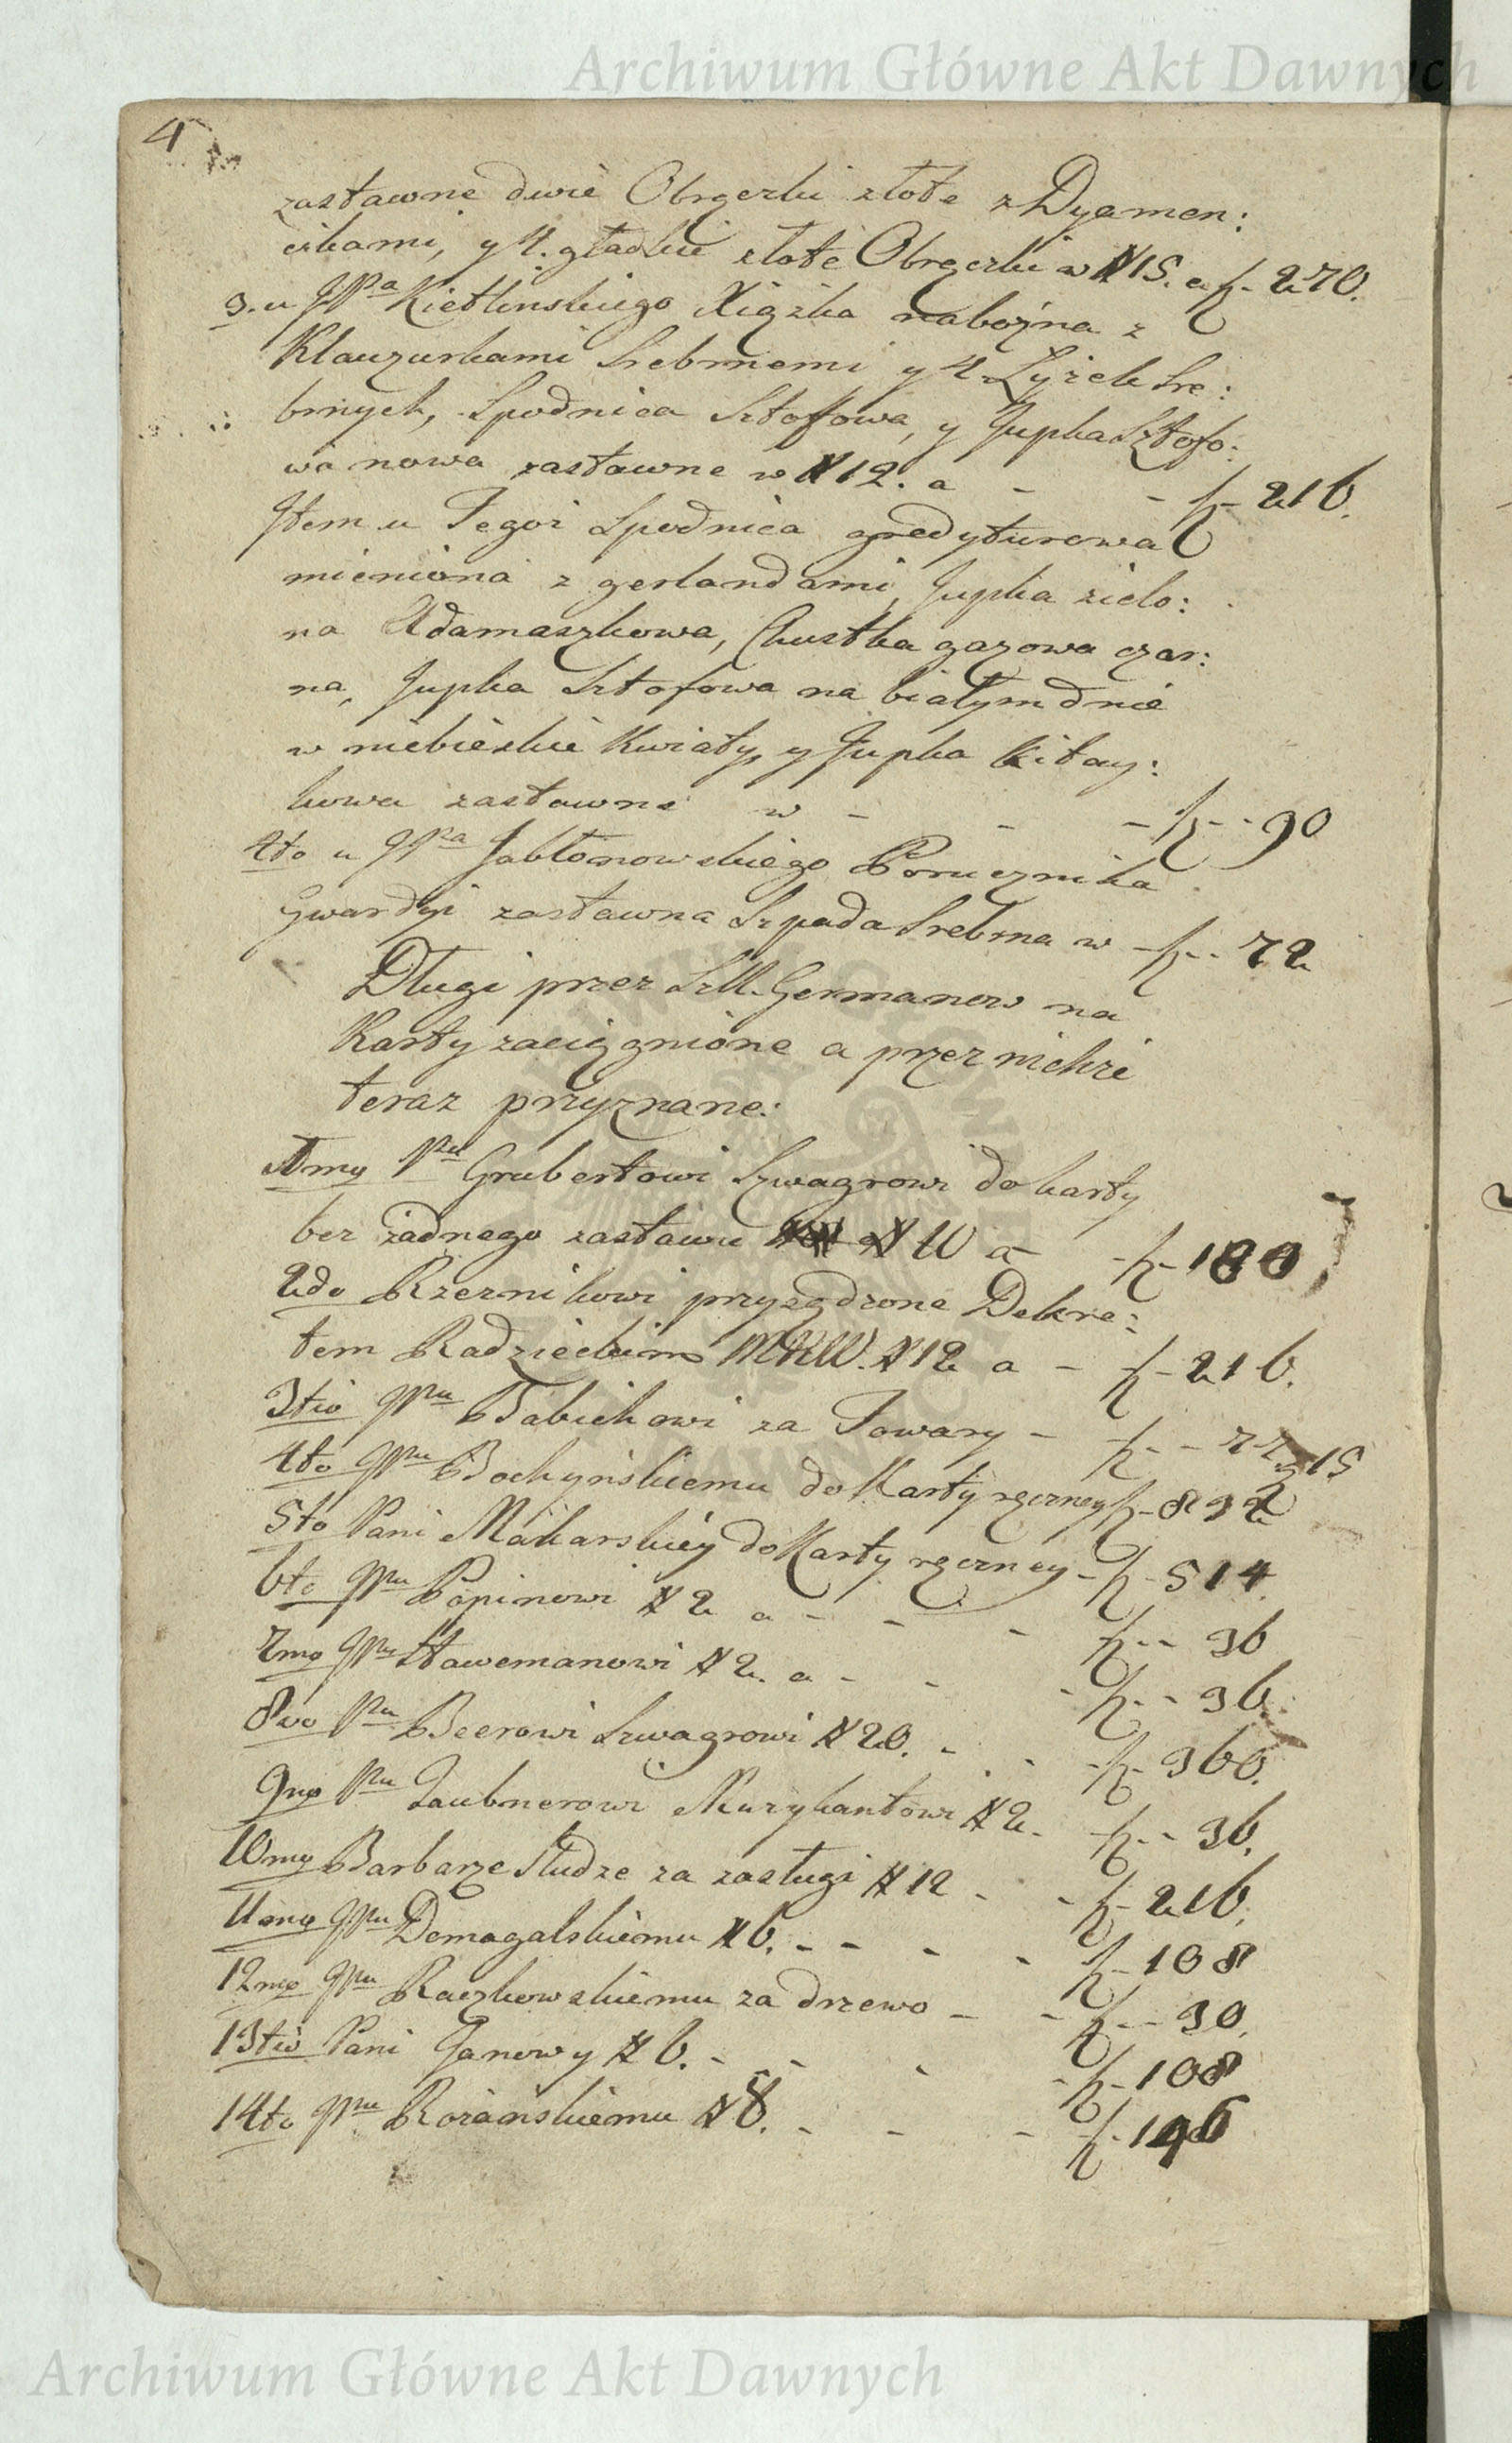 Archiwum Główne Akt Dawnych
4
zastawne dwie Obrączki złote z Dyamen:
cikami, y 4. gładkie złote Obrączki w # 15. a f- 270.
3. u JPa Kietlinskiego Xiążka nabożna z
Klauzurkami Srebrnemi y 4 Łyżek Sre:
brnych, Spodnica Sztofowa, y Jupka Sztofo:
wa nowa zastawne w # 12. a - - f- 216.
Item u Tegoż Spodnica gredyturowa
mieniona z gerlandami, Jupka zielo:
na Adamaszkowa, Chustka gazowa czar:
na, Jupka Sztofowa na białym dnie
w niebieskie Kwiaty, y Jupka kitay:
kowa zastawne w - - - f- - 90
4to u JPa Jabłonowskiego Porucznika
Gwardyi zastawna Szpada Srebrna w - f- - 72
Długi przez Sttt. Germanow na
Karty zaciągnione a przez nichże
teraz przyznane:
1mo Pu Grubertowi Szwagrowi do karty
bez żadnego zastawu # 10 a - - f- 180
2do Rzeznikowi przysądzone Dekre:
tem Radzieckim MRW. # 12 a - f- 216.
3tio JPu Babichowi za Towary - f- - 77 g 15
4to JPu Bochyńskiemu do Karty ręczney f- 892
5to Pani Makarskiey do Karty ręczney - f- 514.
6to JPu Popinowi # 2 a - - - f- - 36
7mo JPu Stawemanowi # 2. a - - - f- - 36.
8vo Pu Beerowi Szwagrowi # 20. - - - f- 360.
9no Pu Taubnerowi Muzykantowi # 2. - f- - 36.
10mo Barbarze Słudze za zasługi # 12 - - f- 216.
11mo JPu Domagalskiemu # 6. - - - - f- 108
12mo JPu Raczkowskiemu za drzewo - - f- - 30.
13tio Pani Janowy # 6. - - - - f- 108
14to JPu Rożańskiemu # 8. - - - f- 146
Archiwum Główne Akt Dawnych